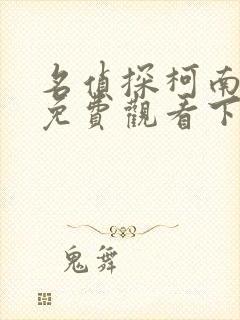 名偵探柯南
免費觀看下
鬼舞